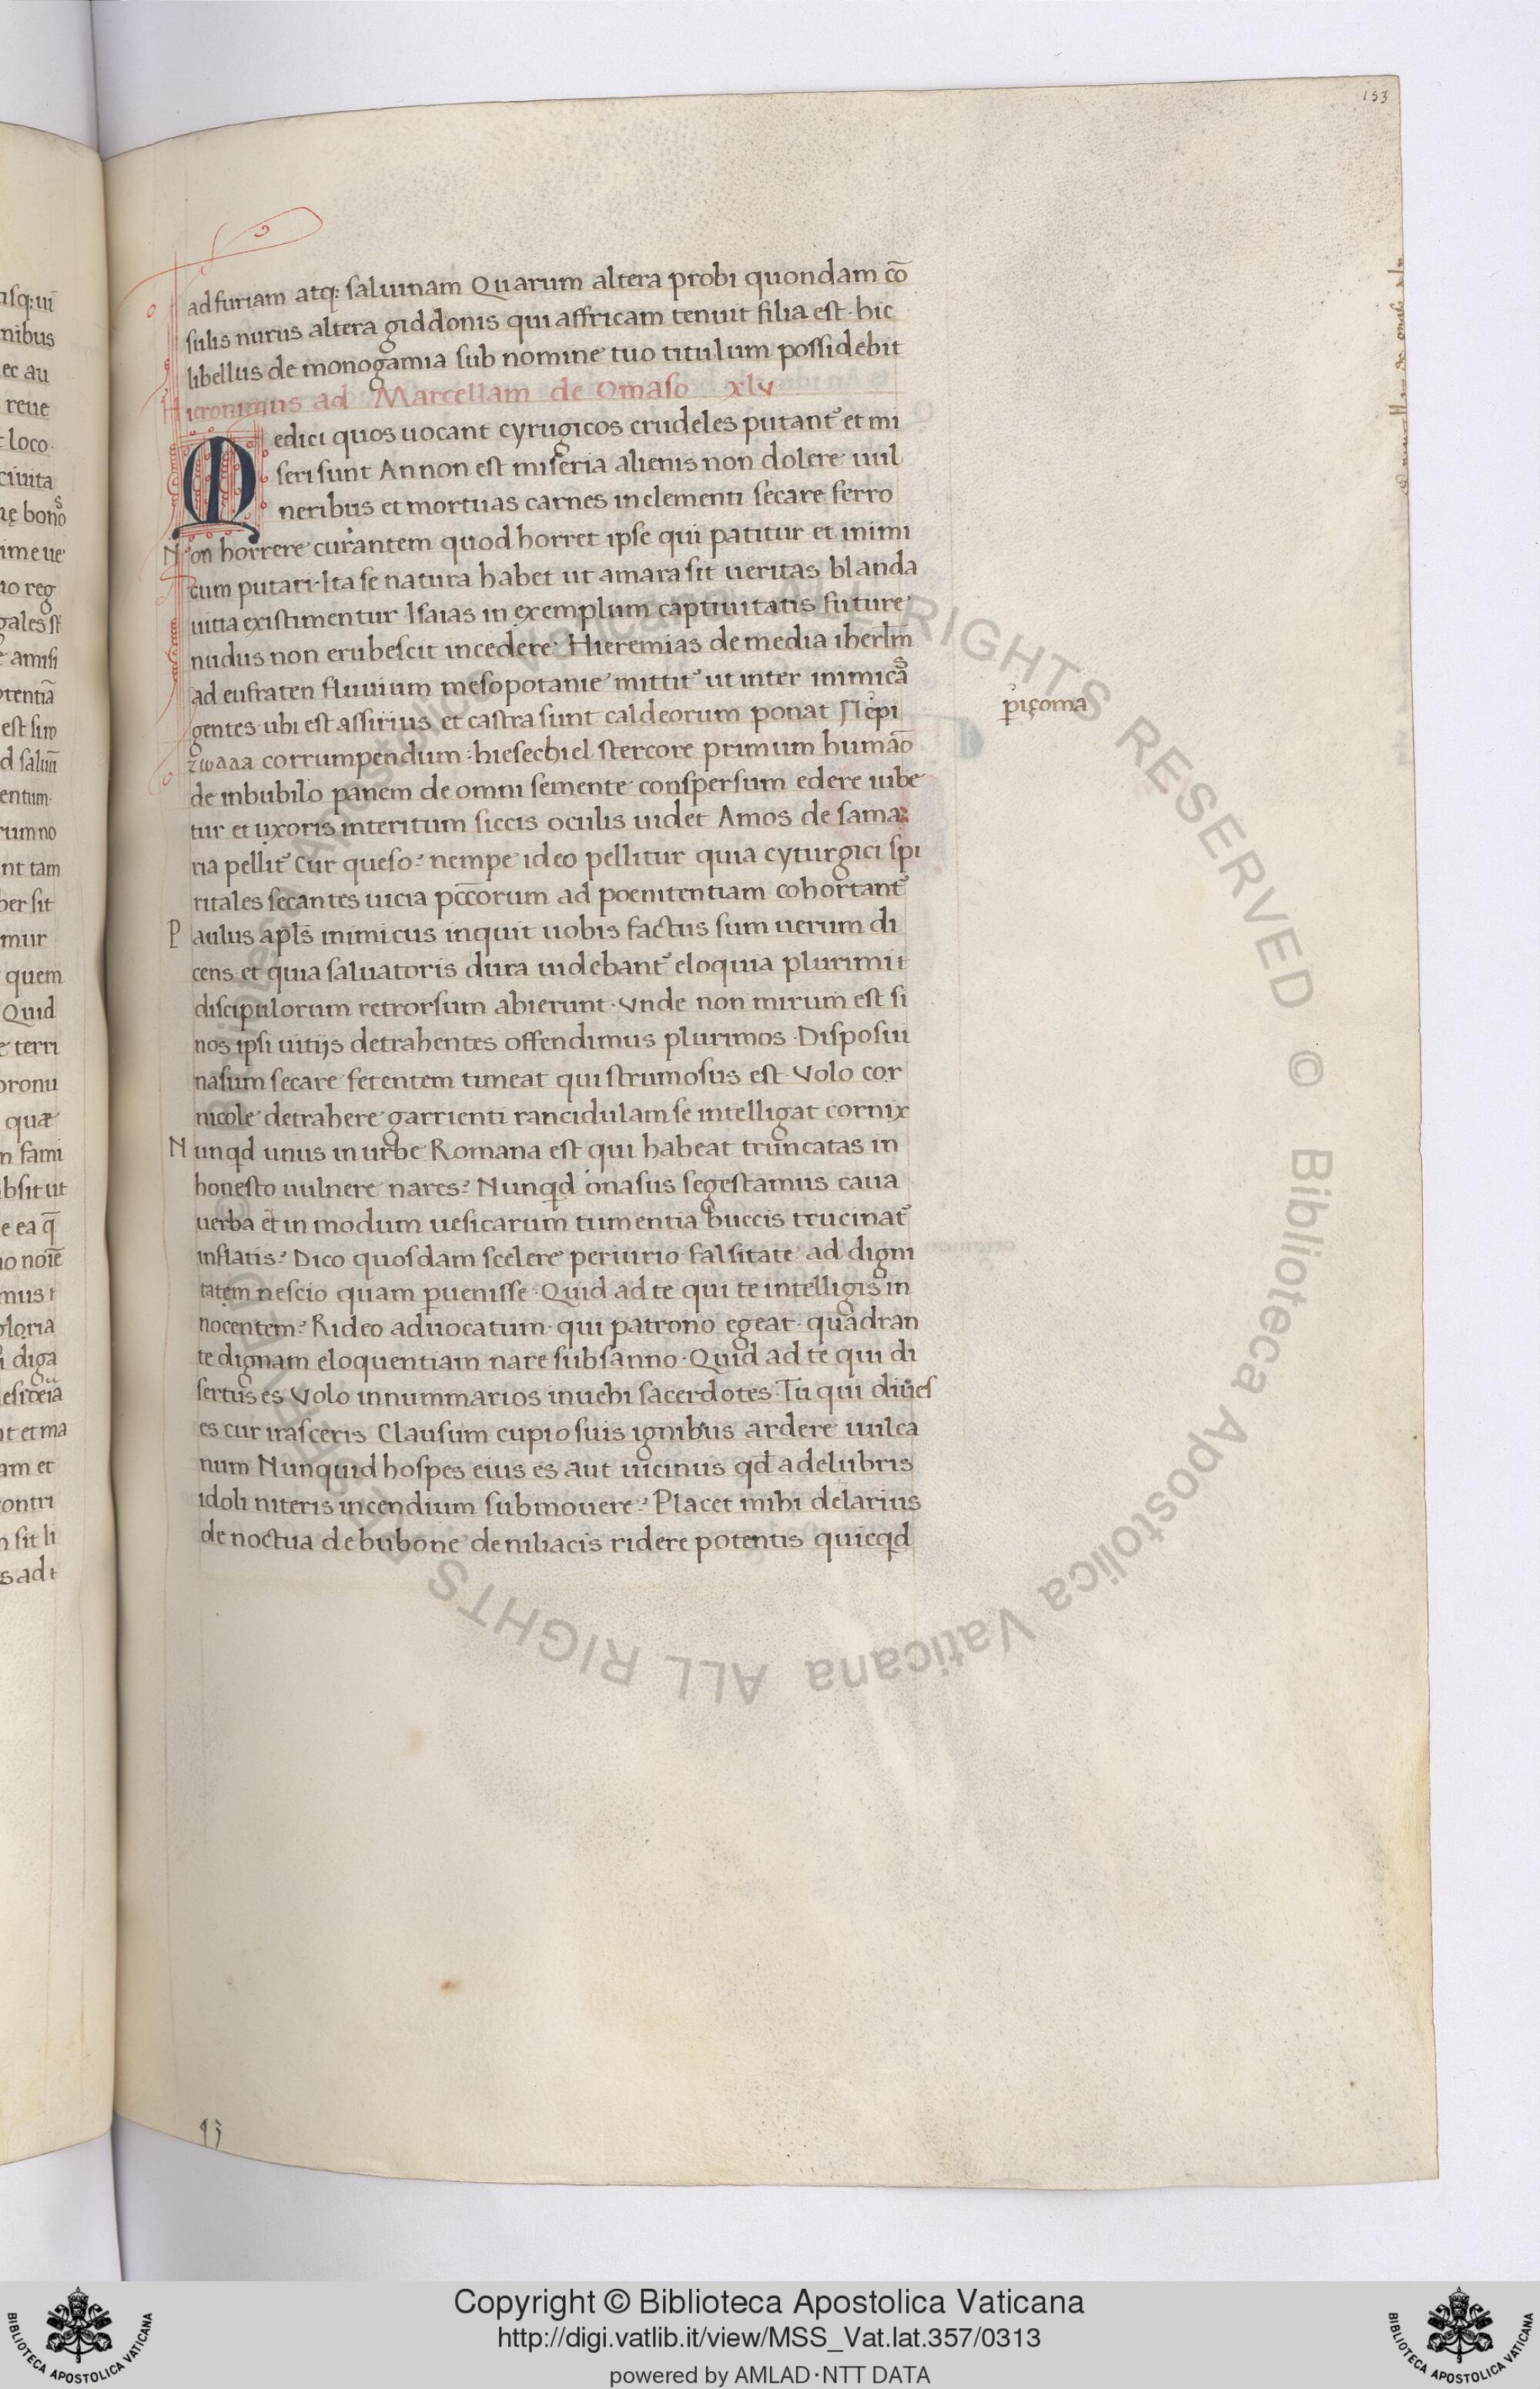 153
ad furiam atq; saluinam Quarum altera probi quondam cō
sulis nurus altera giddonis qui affricam tenuit filia est · hic
libellus de monogamia sub nomine tuo titulum possidebit
Hieronimus ad Marcellam de Omaso xlv
Medici quos uocant cyrugicos crudeles putant᷑ et mi
seri sunt An non est miseria alienis non dolere uul
neribus et mortuas carnes inclementi secare ferro
Non horrere curantem quod horret ipse qui patitur et inimi
cum putari · Ita se natura habet ut amara sit ueritas blanda
uitia existimentur · Isaias in exemplum captiuitatis future
nudus non erubescit incedere · Hieremias de media iherlm̄
ad eufraten fluuium mesopotanie mittit᷑ ut inter inimicās
gentes · ubi est assirius et castra sunt caldeorum ponat Πεpi
zωaaa corrumpendum : hiesechiel stercore primum humāo
de inbubilo panem de omni semente conspersum edere iube
tur et uxoris interitum siccis oculis uidet Amos de sama
ria pellit᷑ Cur queso? nempe ideo pellitur quia cyturgici spi
ritales secantes uicia pcc̄orum ad poenitentiam cohortant᷑
Paulus apl̄s inimicus inquit uobis factus sum uerum di
cens et quia saluatoris dura uidebant᷑ eloquia plurimi t
discipulorum retrorsum abierunt · Vnde non mirum est si
nos ipsi uitijs detrahentes offendimus plurimos · Disposiu
nasum secare fetentem timeat qui strumosus est · Volo cor
nicole detrahere garrienti rancidulam se intelligat cornix
Nunqd unus in urbe Romana est qui habeat truncatas in
honesto uulnere nares? Nunqd onasus segestamus caua
uerba et in modum uesicarum tumentia buccis trucinat᷑
inflatis? Dico quosdam scelere periurio falsitate ad digni
tatem nescio quam ꝑuenisse · Quid ad te qui te intelligis in
nocentem? Rideo aduocatum · qui patrono egeat · quadran
te dignam eloquentiam nare subsanno · Quid ad te qui di
sertus es Volo in nummarios inuehi sacerdotes · Tu qui diues
es cur irasceris Clausum cupio suis ignibus ardere uulca
num Nunquid hospes eius es aut uicinus qd a delubris
idoli niteris incendium submouere? Placet mihi delarius
de noctua de bubone de niliacis ridere potentis quicqd
ꝑiçoma
isq; ui
nibus
ec au
reue
loco ·
ciuita
ime ue
no reg
amisi
otentiā
est sim
entum ·
rum no
nt tam
ber sit
mur
quem
Quid
e terri
oronu
quæ
m fami
bsit ut
e ea q̄
no noīe
mus t
gloria
diga
nt et ma
am et
contri
n sit li
s ad t
Copyright © Biblioteca Apostolica Vaticana
http://digi.vatlib.it/view/MSS_Vat.lat.357/0313
powered by AMLAD·NTT DATA
BIBLIOTECA APOSTOLICA VATICANA
BIBLIOTECA APOSTOLICA VATICANA
© Biblioteca Apostolica Vaticana ALL RIGHTS RESERVED